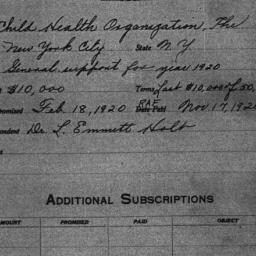 Child Health Organization, The
New York City State N.Y.
General support for year 1920
$10,000 Terms Last $10,000 of 50,
omised Feb 18, 1920 Date Paid Nov 17, 192
ondent Dr. L. Emmett Holt
ADDITIONAL SUBSCRIPTIONS
MOUNT PROMISED PAID OBJECT